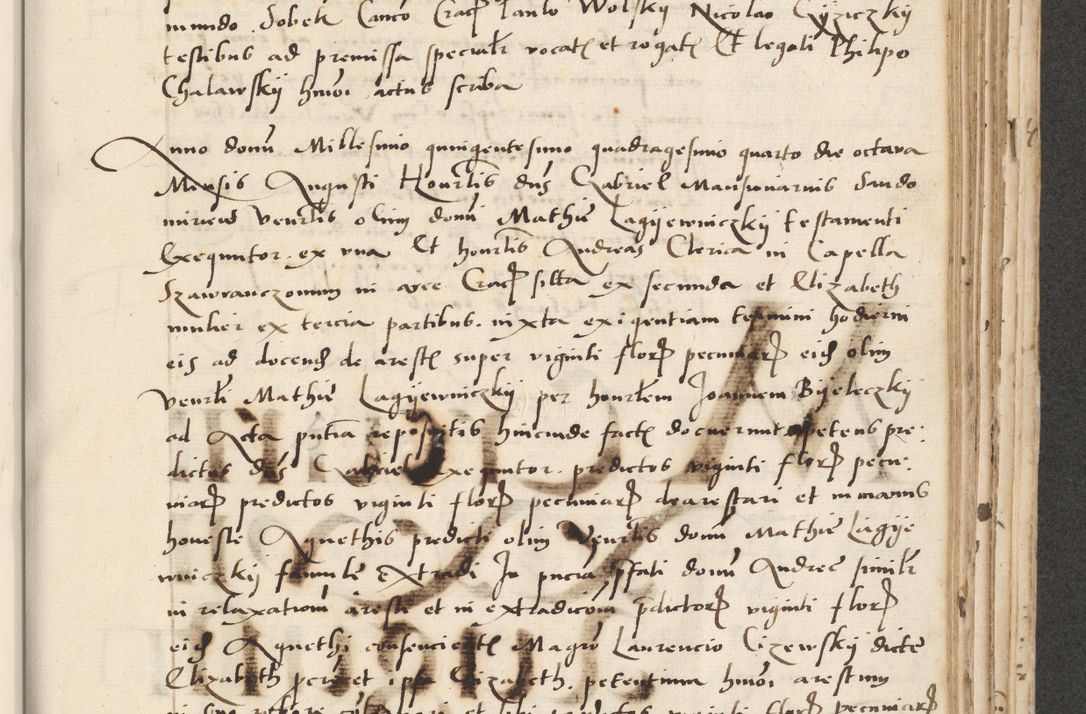 mundo Sobek Canco Crac Paulo Wolsky Nicolao Czyziczky
testibus ad premissa specialr vocat et rogat Et legali Philipo
Chalawskÿ hmoi actus scriba
Anno domi Millesimo quingentesimo quadragesimo quarto die octava
Mensis Augusti Honrlis dns Gabriel Mansionarius Sando
miriens venrlis olim domi Mathie Lagÿewniczkÿ testamenti
Exequutor ex una Et honrlis Andreas Clerica in Capella
Szawranczonum in arce Crac sitta ex secunda et Elizabeth
mulier ex tercia partibus iuxta exigentiam termini hodierni
eis ad docend de arest super viginti flor pecuniar eid olim
venrli Mathie Lagÿewniczkÿ per honrlem Joannem Bÿeleczkÿ
ad Acta pntia repositis hincinde fact docuerunt petens pre
dictus dns Gabriel exequutor predictos viginti flor pecu
niar predictos viginti flor pecuniar dearestari et in manus
honeste Agnethis predicti olim Venrlis domi Mathie Lagÿe
wniczkÿ famule extradi In pncia pfati domi Andree similr
in relaxationem aresti et in extradicom pdictor viginti flor
eid Agnethi consencient Magro Laurencio Cizewskÿ dicte
Elizabeth pcre et ipsa Elizabeth petentium hmoi arestum
viginti flor pecuniar